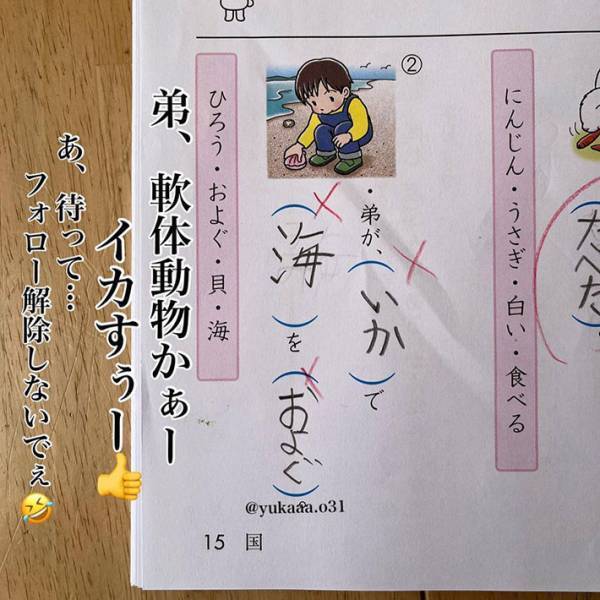 (たべた)。
にんじん・うさぎ・白い・食べる
②
・弟が、(いか)で
(海)を(およぐ)。
ひろう・およぐ・貝・海
弟、軟体動物かぁー
イカすぅー👍
あ、待って…
フォロー解除しないでぇ🤣
@yukaaa.o31
15 国